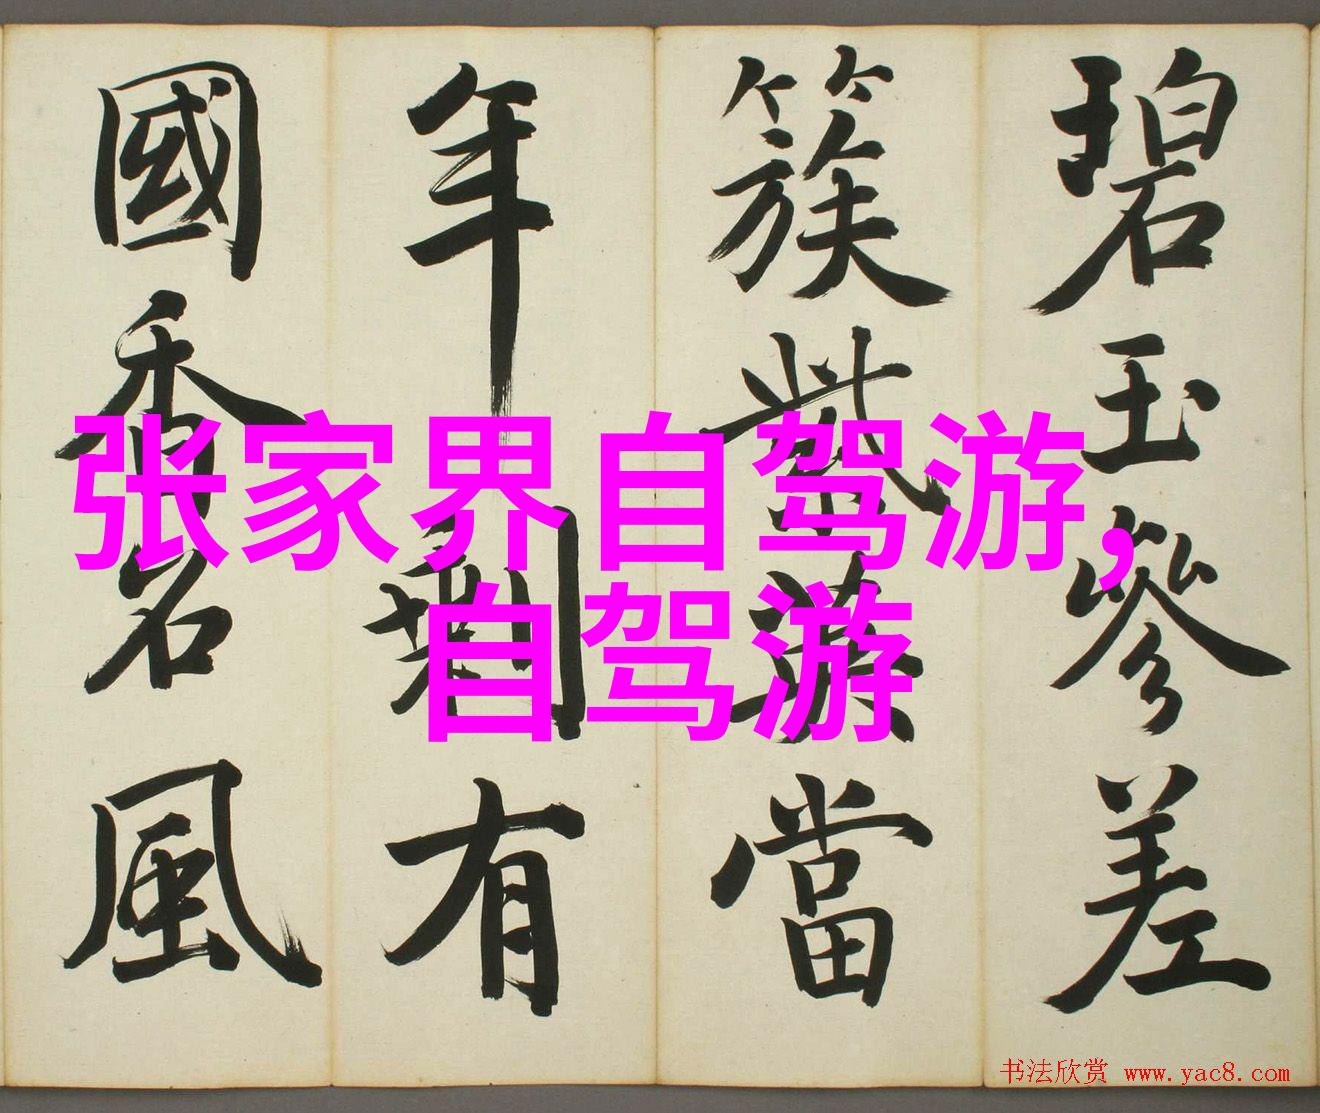 碧玉參差
簇紫英當
年剩有
國香名風
张家界自驾游,
自驾游
书法欣赏 www.yac8.com